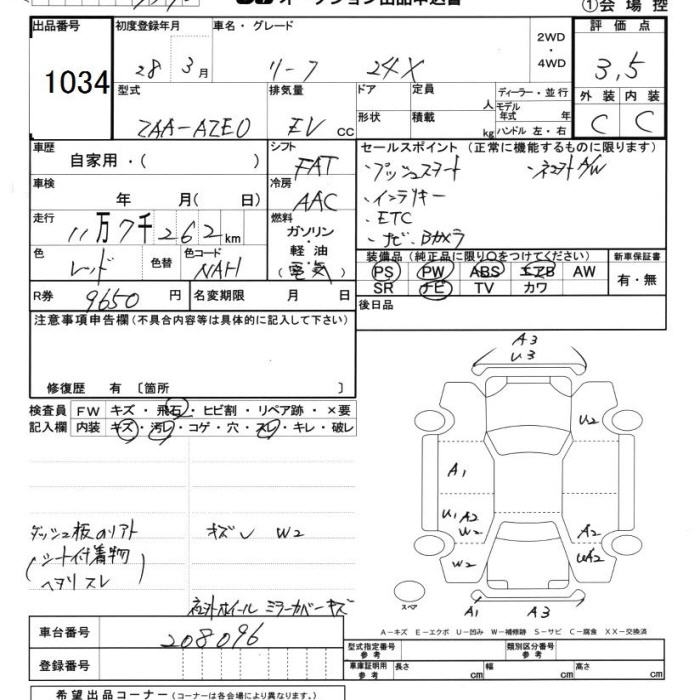 ①会場控
出品番号 初度登録年月 車名・グレード 2WD・4WD 評価点
1034 28 3月 リーフ 24X 3.5
型式 排気量 ドア 定員 人 ディーラー・並行 外装 内装
モデル年式 年
ZAA-AZE0 EV CC 形状 積載 kg ハンドル 左・右 C C
車歴 シフト セールスポイント(正常に機能するものに限ります)
自家用・( ) FAT ・プッシュスタート ・ネコソトA/W
車検 冷房 ・インテリキー
年 月( 日) AAC ・ETC
走行 燃料 ・ナビ、Bカメラ
11万7千262km ガソリン・軽油(電気)
色 色替 色コード 装備品(純正品に限り○をつけてください) 新車保証書
レッド NAH PS PW ABS エアB AW 有・無
R券 9650円 名変期限 月 日 SR ナビ TV カワ
後日品
注意事項申告欄(不具合内容等は具体的に記入して下さい)
修復歴 有 〔箇所 〕
検査員 FW キズ・飛石・ヒビ割・リペア跡・×要
記入欄 内装 キズ・汚レ・コゲ・穴・スレ・キレ・破レ
A3
U3
U2
A1
U1 A2
W2 A2
W2 UA2
A1 A3
スペア
ダッシュ板のリアト キズ レ W2
シート付着物
ヘタリ スレ
社外ホイール ミラーカバーキズ
A-キズ E-エクボ U-凹み W-補修跡 S-サビ C-腐食 XX-交換済
車台番号 208096 型式指定番号 参考 類別区分番号 参考
登録番号 車庫証明用 参考 長さ cm 幅 cm 高さ cm
希望出品コーナー(コーナーは各会場により異なります。)